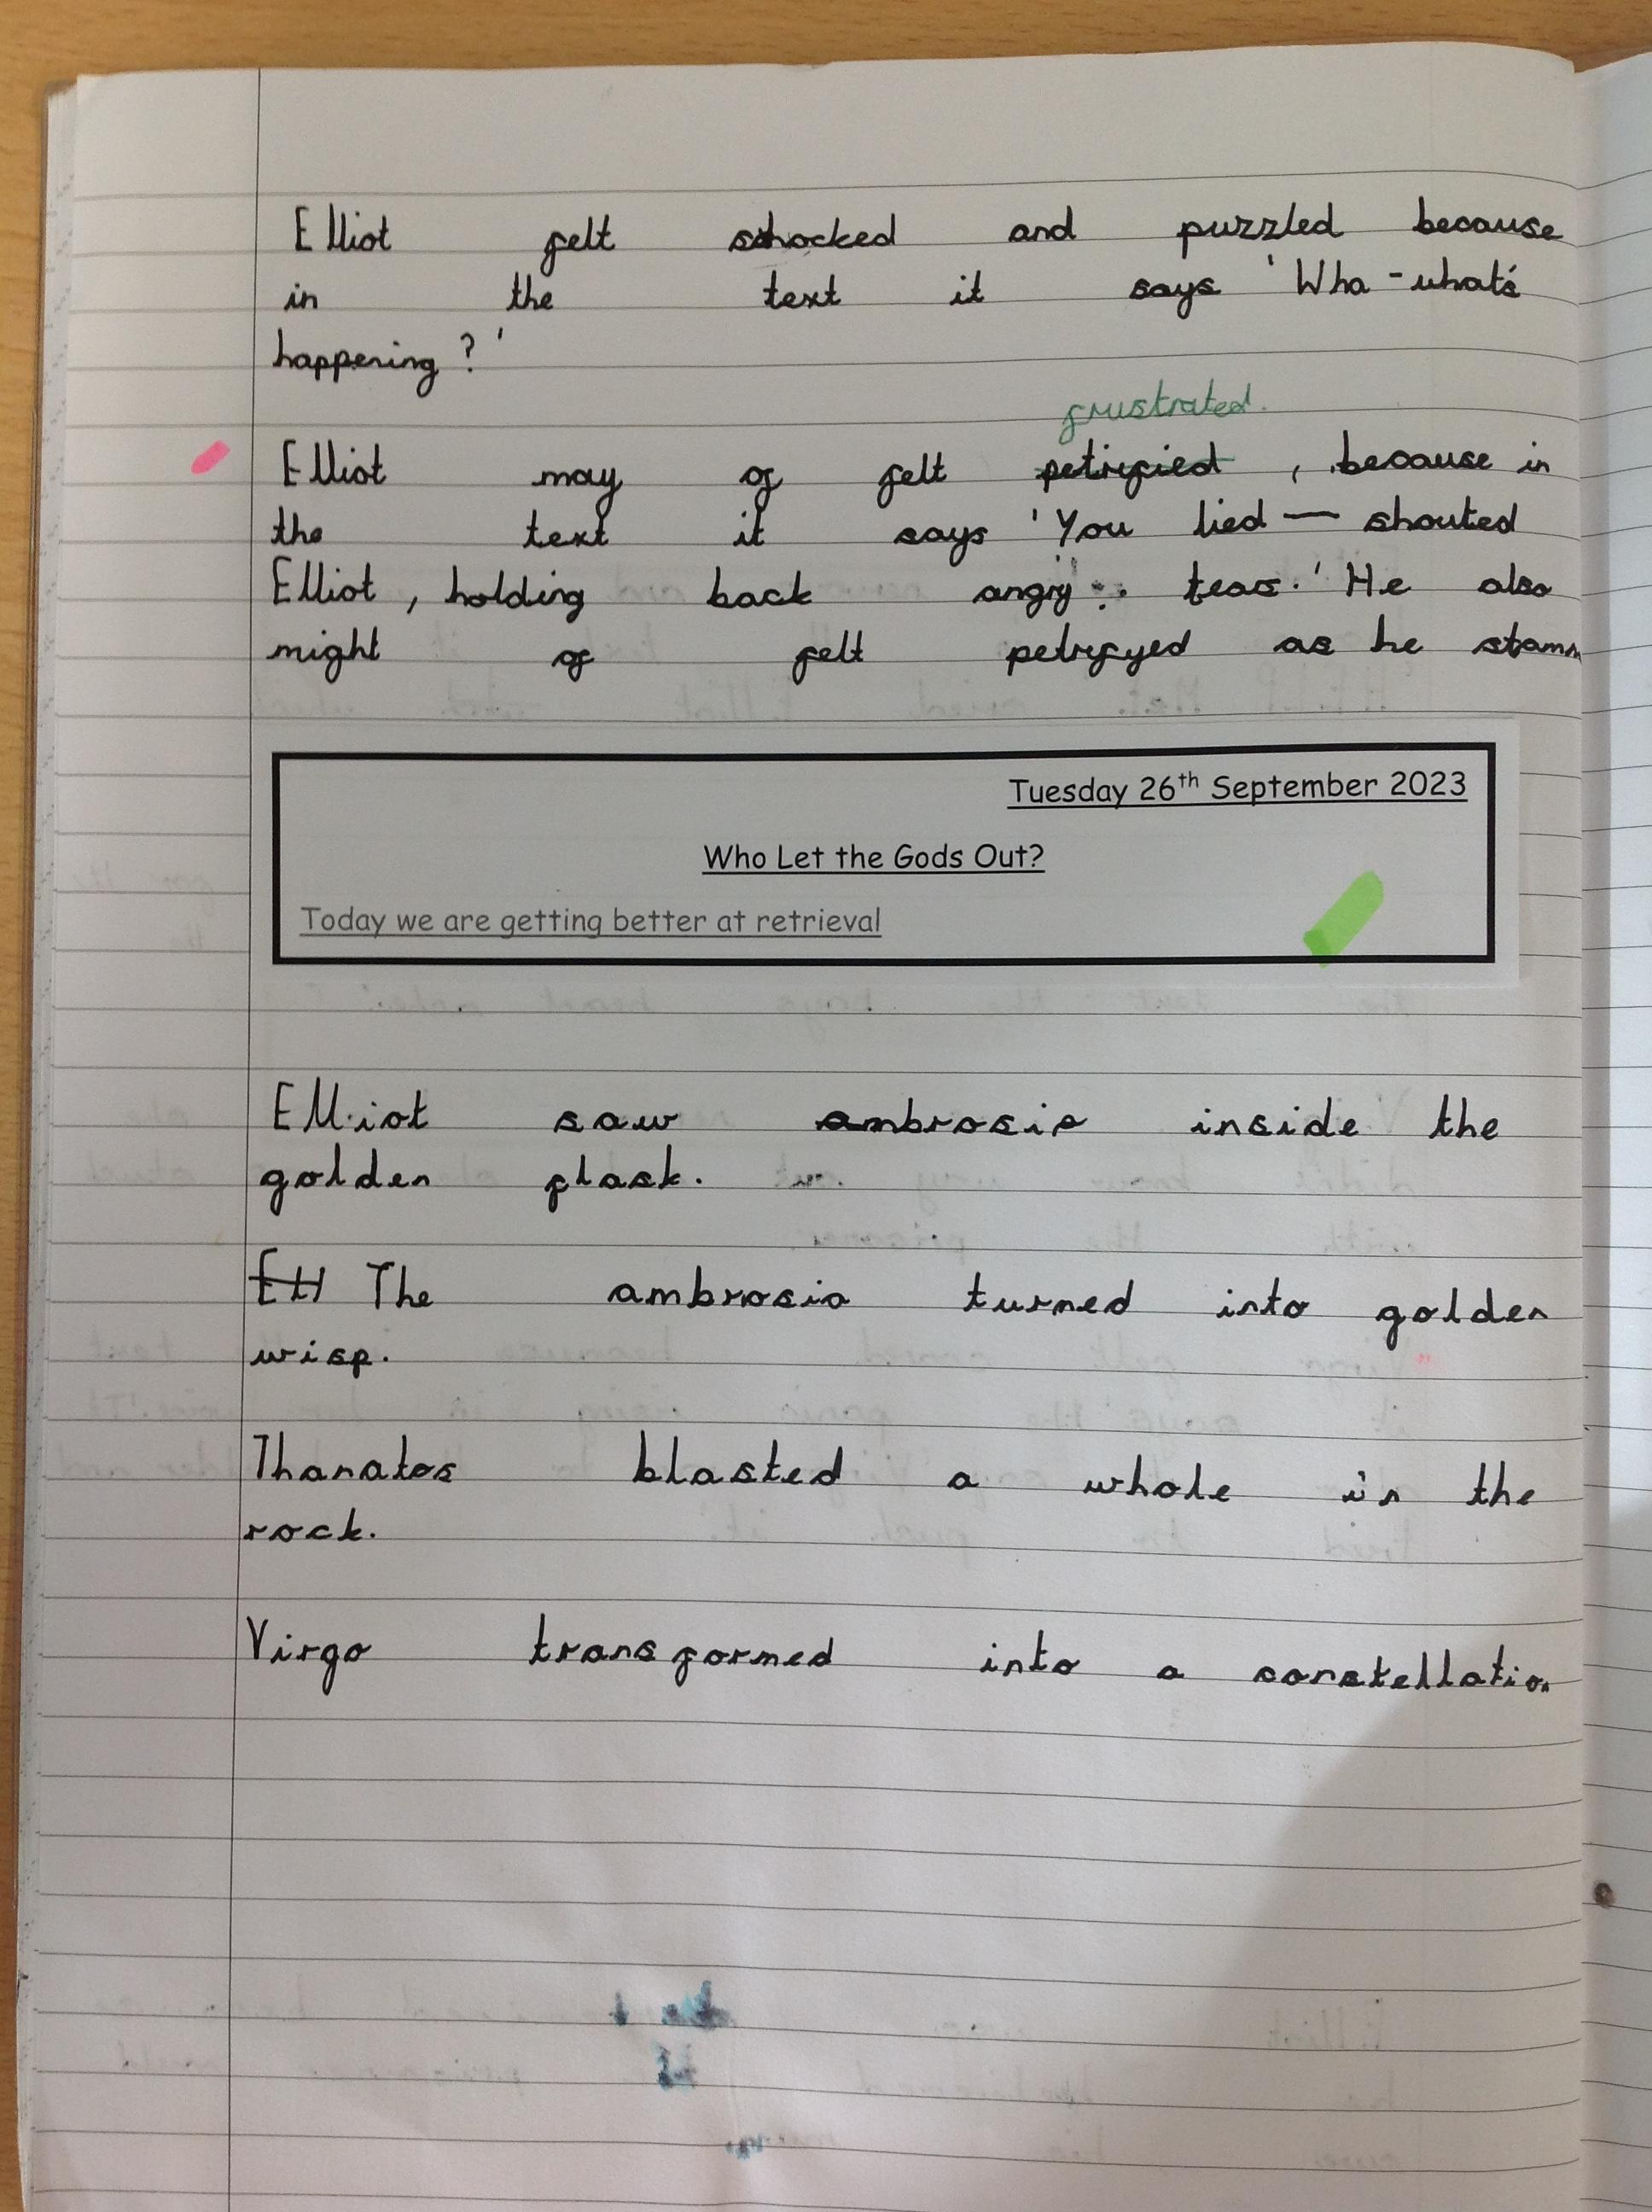 Elliot felt shocked and puzzled because
in the text it says 'Wha - what's
happening?'
frustrated.
Elliot may of felt petrified, because in
the text it says 'You lied — shouted
Elliot, holding back angry tears.' He also
might of felt petrifyed as he stamm
Tuesday 26th September 2023
Who Let the Gods Out?
Today we are getting better at retrieval
Elliot saw ambrosia inside the
golden flask.
Ell The ambrosia turned into golden
wisp.
Thanatos blasted a whole in the
rock.
Virgo transformed into a constellation